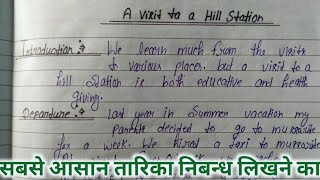 A Visit to a Hill Station
Introduction :- We learn much from the visits
to various places. but a visit to a
hill station is both educative and health
giving.
Departure :- Last year in Summer vacation my
parents decided to go to mussoorie
for a week. We hired a taxi to mussoorie
सबसे आसान तारिका निबन्ध लिखने का